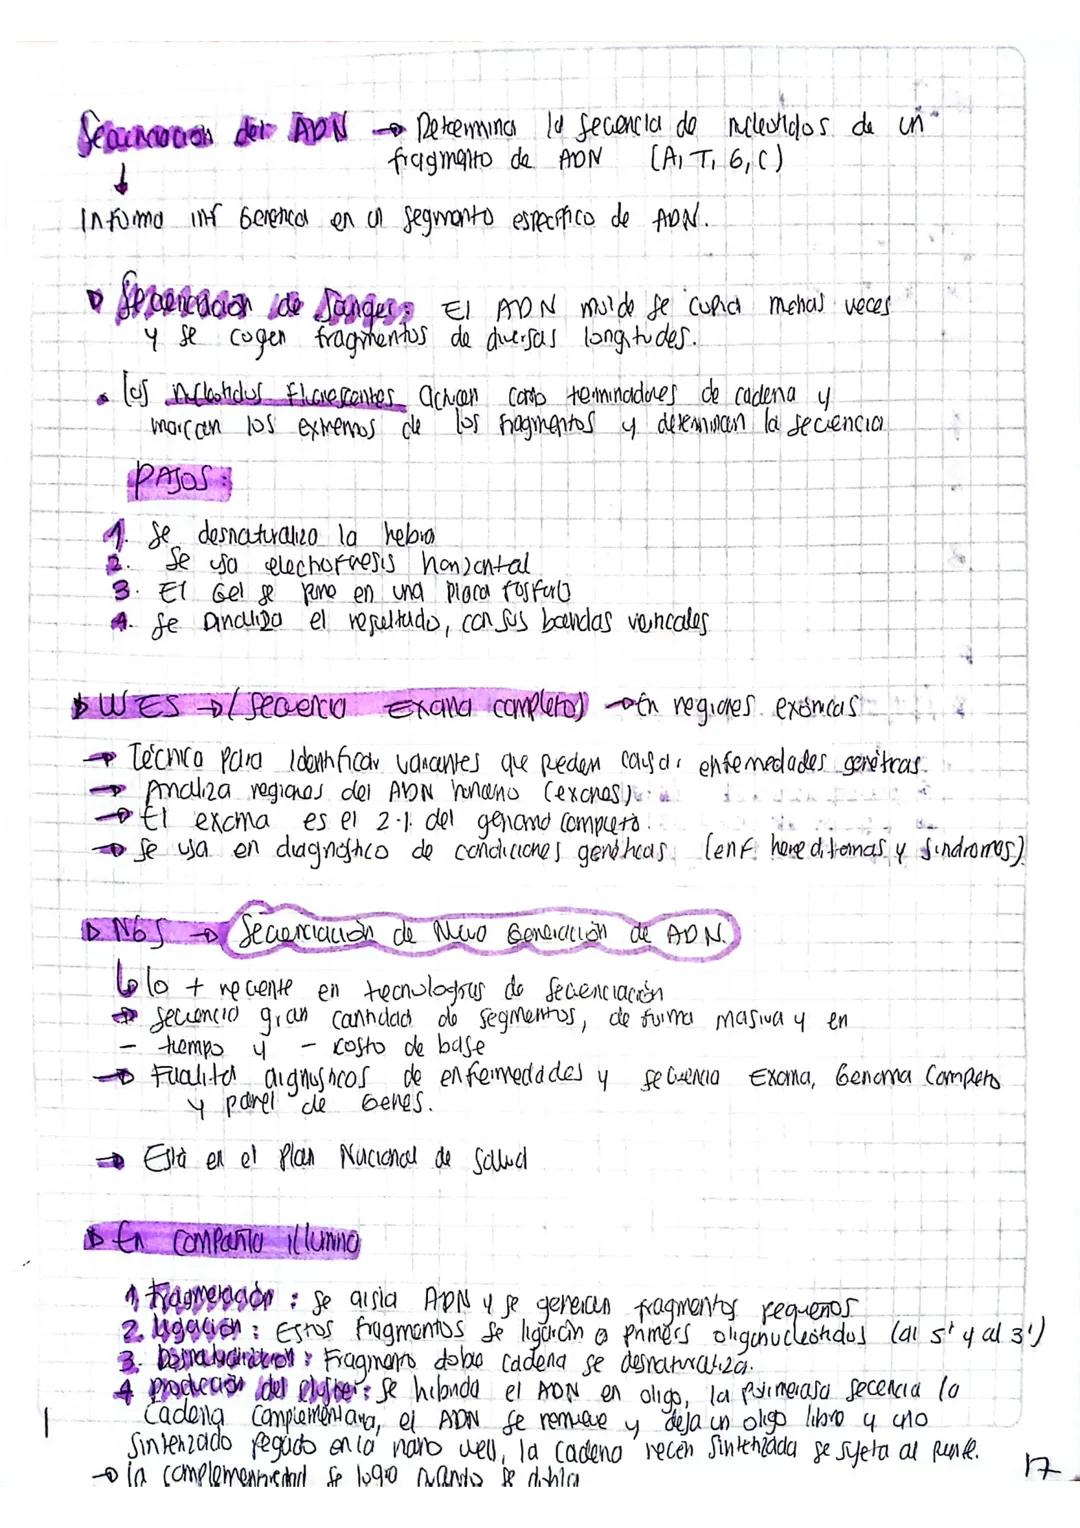 Secuenciación del ADN → Determina la secencia de nucleótidos de un
fragmento de ADN (A, T, G, C)
↓
Informa inf Genetica en un segmento específico de ADN.
▷ Secuenciación de Sanger: El ADN molde se copia muchas veces
y se cogen fragmentos de diversas longitudes.
• los nucleotidos fluorescentes actuan como terminadores de cadena y
marcan los extremos de los fragmentos y determinan la secuencia
PASOS:
1. Se desnaturaliza la hebra
2. Se usa electroforesis horizontal
3. El Gel se pone en una placa fosforo
4. Se Analiza el resultado, con sus bandas verticales
▷ WES → (secuencia Exoma completo) → En regiones exónicas
→ Técnica para Identificar variantes que pueden causar enfermedades genéticas.
→ Analiza regiones del ADN humano (exones).
→ El exoma es el 2% del genoma completo.
→ Se usa en diagnóstico de condiciones genéticas. (enf. hereditarias y sindromes)
▷ NGS → Secuenciación de Nueva Generación de ADN.
↳ lo + reciente en tecnologías de secuenciación
→ Secuencia gran cantidad de segmentos, de forma masiva y en
- tiempo y - costo de base
→ Facilita diagnósticos de enfermedades y secuencia Exoma, Genoma Completo
y panel de Genes.
→ Está en el Plan Nacional de Salud
▷ En compañia illumina
1. Fragmentación: Se aisla ADN y se generan fragmentos pequeños
2. Ligación: Estos fragmentos se ligarán a primers oligonucleotidos (al 5' y al 3')
3. Desnaturalización: Fragmento doble cadena se desnaturaliza.
4 producción del cluster: Se hibrida el ADN en oligo, la polimerasa secencia la
Cadena Complementaria, el ADN se remueve y deja un oligo libre y uno
Sintetizado pegado en la nano well, la cadena recen sintetizada se sujeta al puente.
→ la complementariedad se logra cuando se dobla
17